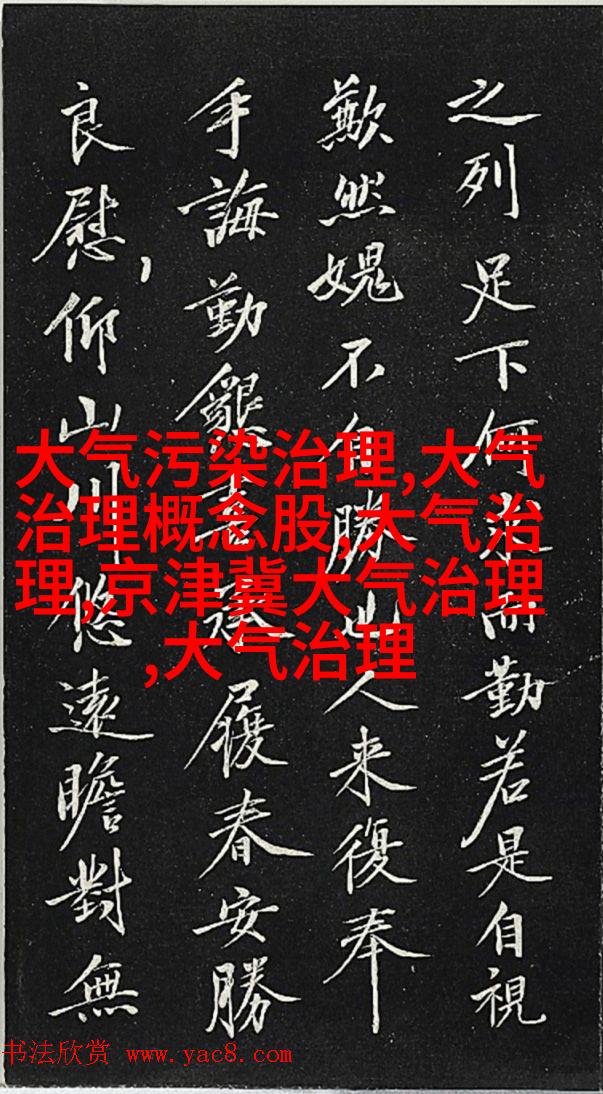 之列足下何求而勤若是自視
歉然媿不自勝人来復奉
手誨勤懇履春安勝
良慰,仰山川悠遠瞻對無
大气污染治理,大气
治理概念股,大气治
理,京津冀大气治理
,大气治理
书法欣赏 www.yac8.com